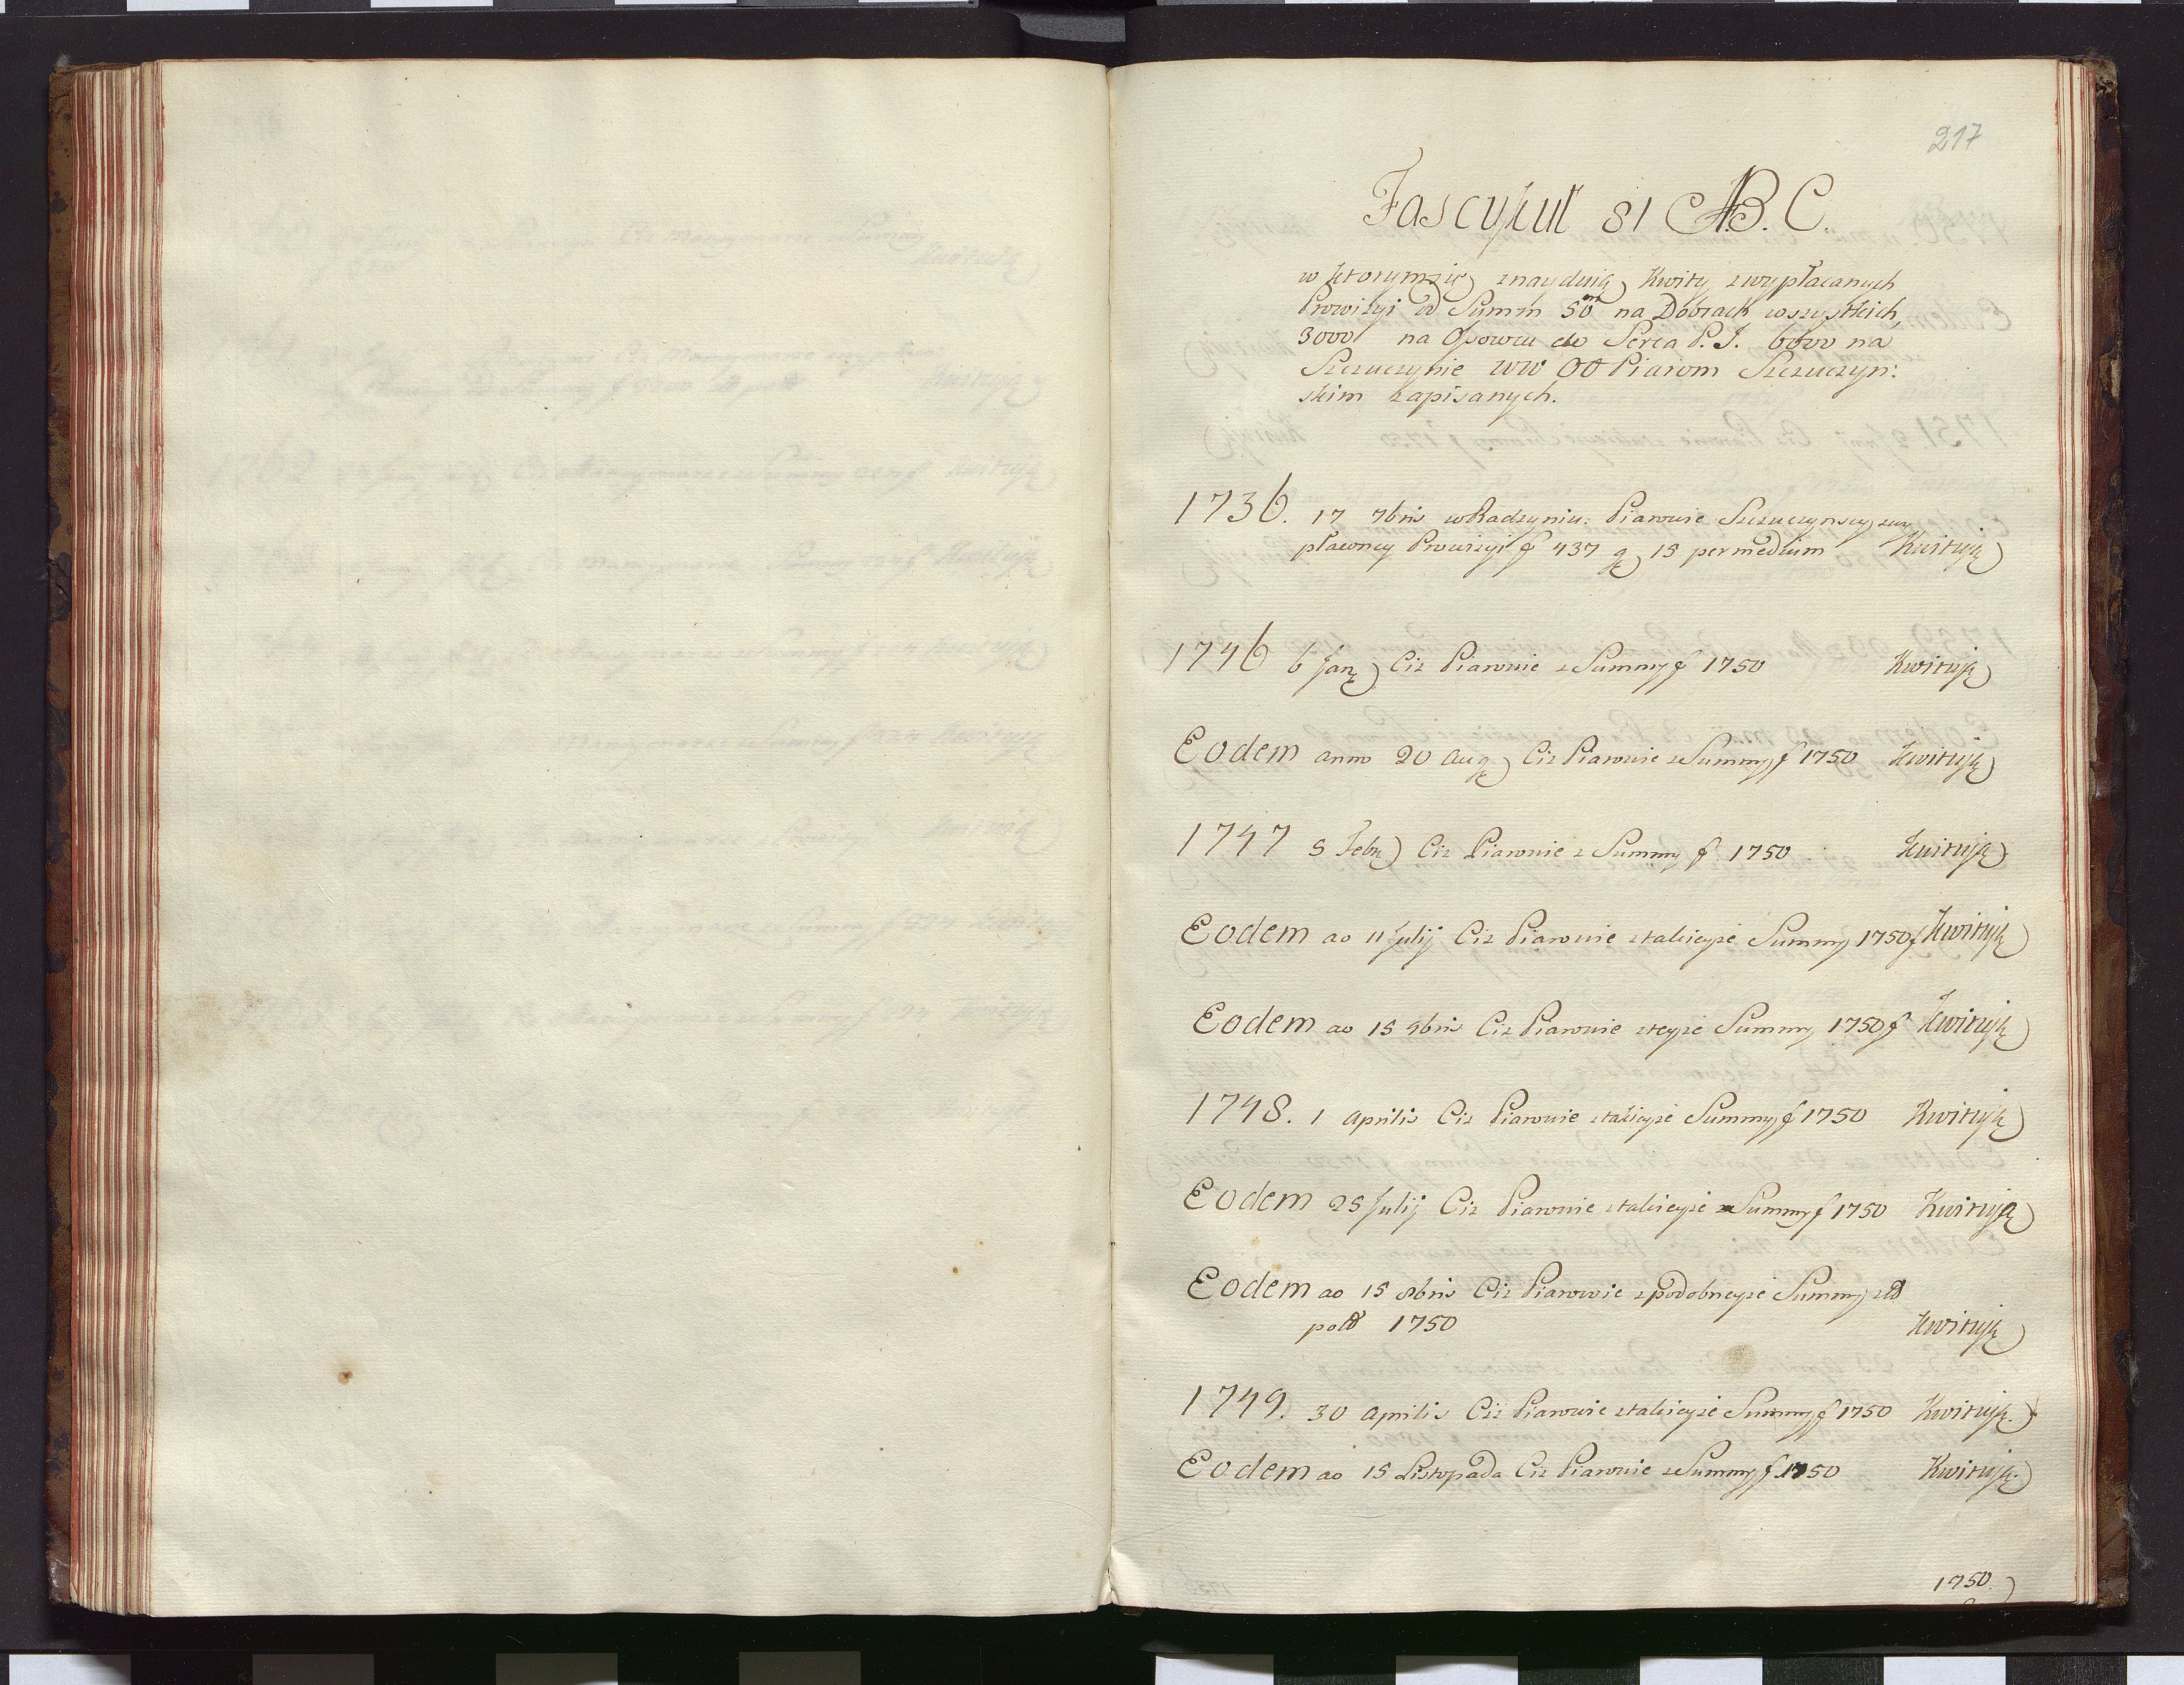 217
Fascykuł 81 A.B.C.
w ktorym się znayduią Kwity z wypłacanych
Prowizyi od Summ 50m na Dobrach wszystkich,
3000 na Opowcu do Serca P. J. 6000 na
Szczuczynie WW OO Piarom Szczuczyn:
skim zapisanych.
1736. 17 7bris w Radzyniu. Piarowie Szczuczynscy z wy
płaconey Prowizyi f 437 g 15 per medium Kwituią
1746 6 Jany Ciż Piarowie z Summy f 1750 Kwituią
Eodem anno 20 Aug Ciż Piarowie z Summy f 1750 Kwituią
1747 5 Febr Ciż Piarowie z Summy f 1750 Kwituią
Eodem ao 11 Julij Ciż Piarowie z takieyże Summy 1750 f Kwituią
Eodem ao 15 9bris Ciż Piarowie z teyże Summy 1750 f Kwituią
1748. 1 Aprilis Ciż Piarowie z takieyże Summy f 1750 Kwituią
Eodem 25 Julij Ciż Piarowie z takieyże Summy f 1750 Kwituią
Eodem ao 15 8bris Ciż Piarowie z podobneyże Summy złł
poll 1750 Kwituią
1749. 30 Aprilis Ciż Piarowie z takieyże Summy f 1750 Kwituią.
Eodem ao 15 Listopada Ciż Piarowie z Summy f 1750 Kwituią.
1750.